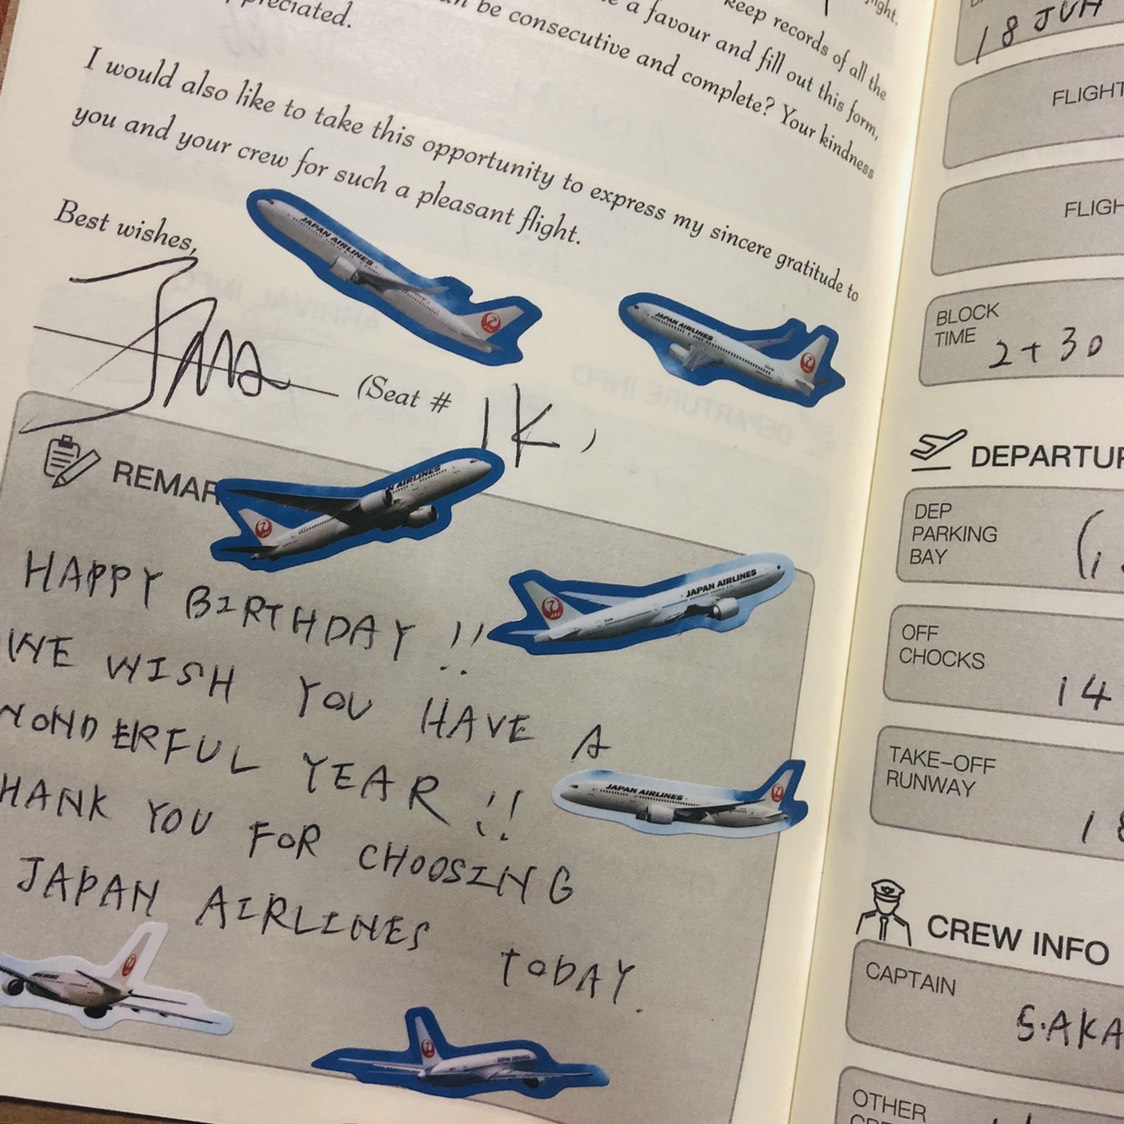 preciated.
keep records of all the
a favour and fill out this form,
be consecutive and complete? Your kindness
I would also like to take this opportunity to express my sincere gratitude to
you and your crew for such a pleasant flight.
Best wishes,
(Seat # 1K,
JAPAN AIRLINES
JAPAN AIRLINES
REMAR
AIRLINES
JAPAN AIRLINES
HAPPY BIRTHDAY !!
WE WISH YOU HAVE A
WONDERFUL YEAR !!
HANK YOU FOR CHOOSING
JAPAN AIRLINES TODAY.
JAPAN AIRLINES
18 JUN
FLIGHT
FLIGH
BLOCK
TIME 2+30
DEPARTUR
DEP
PARKING
BAY
OFF
CHOCKS
14
TAKE-OFF
RUNWAY
18
CREW INFO
CAPTAIN
S.AKA
OTHER